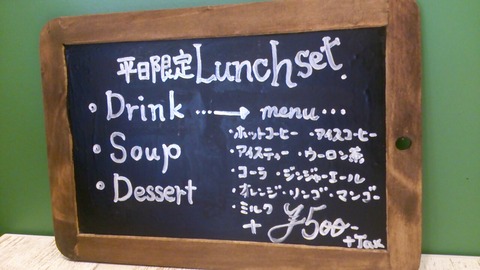 平日限定 Lunch set.
• Drink ....→ menu...
• Soup
• Dessert
・ホットコーヒー ・アイスコーヒー
・アイスティー ・ウーロン茶
・コーラ ・ジンジャーエール
・オレンジ・リンゴ・マンゴー
・ミルク
+ ¥500-
+Tax